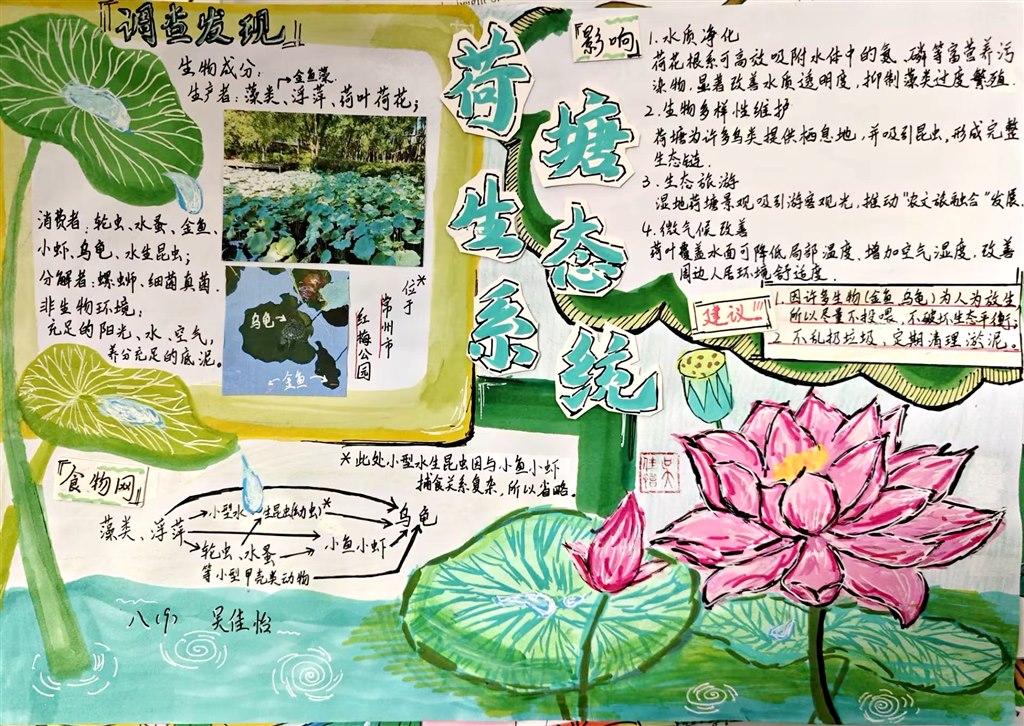 荷塘
生态
系统
『调查发现』
生物成分:
金鱼藻.
生产者:藻类、浮萍、荷叶荷花;
消费者:轮虫、水蚤、金鱼、
小虾、乌龟、水生昆虫;
分解者:螺蛳、细菌真菌.
非生物环境:
充足的阳光、水、空气,
养分充足的底泥。
乌龟
金鱼
*
位于
常州市
红梅公园
『影响』
1.水质净化
荷花根系可高效吸附水体中的氮、磷等富营养污
染物,显著改善水质透明度,抑制藻类过度繁殖.
2.生物多样性维护
荷塘为许多鸟类提供栖息地,并吸引昆虫,形成完整
生态链.
3.生态旅游
湿地荷塘景观吸引游客观光,推动“农文旅融合”发展.
4.微气候改善
荷叶覆盖水面可降低局部温度,增加空气湿度,改善
周边人居环境舒适度.
建议!!!
1.因许多生物(金鱼 乌龟)为人为放生
所以尽量不投喂、不破坏生态平衡;
2.不乱扔垃圾,定期清理淤泥。
『食物网』
*此处小型水生昆虫因与小鱼小虾
捕食关系复杂,所以省略。
藻类、浮萍
小型水生昆虫(幼虫)*
乌龟
轮虫、水蚤
小鱼小虾
等小型甲壳类动物
八(9) 吴佳怡
吴佳怡